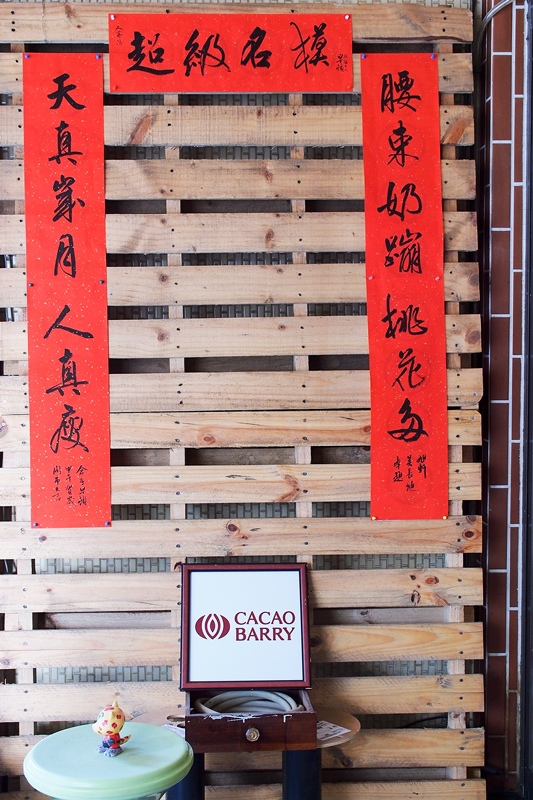 超級名模
腰束奶蹦桃花多
天真歲月人真瘦
CACAO
BARRY